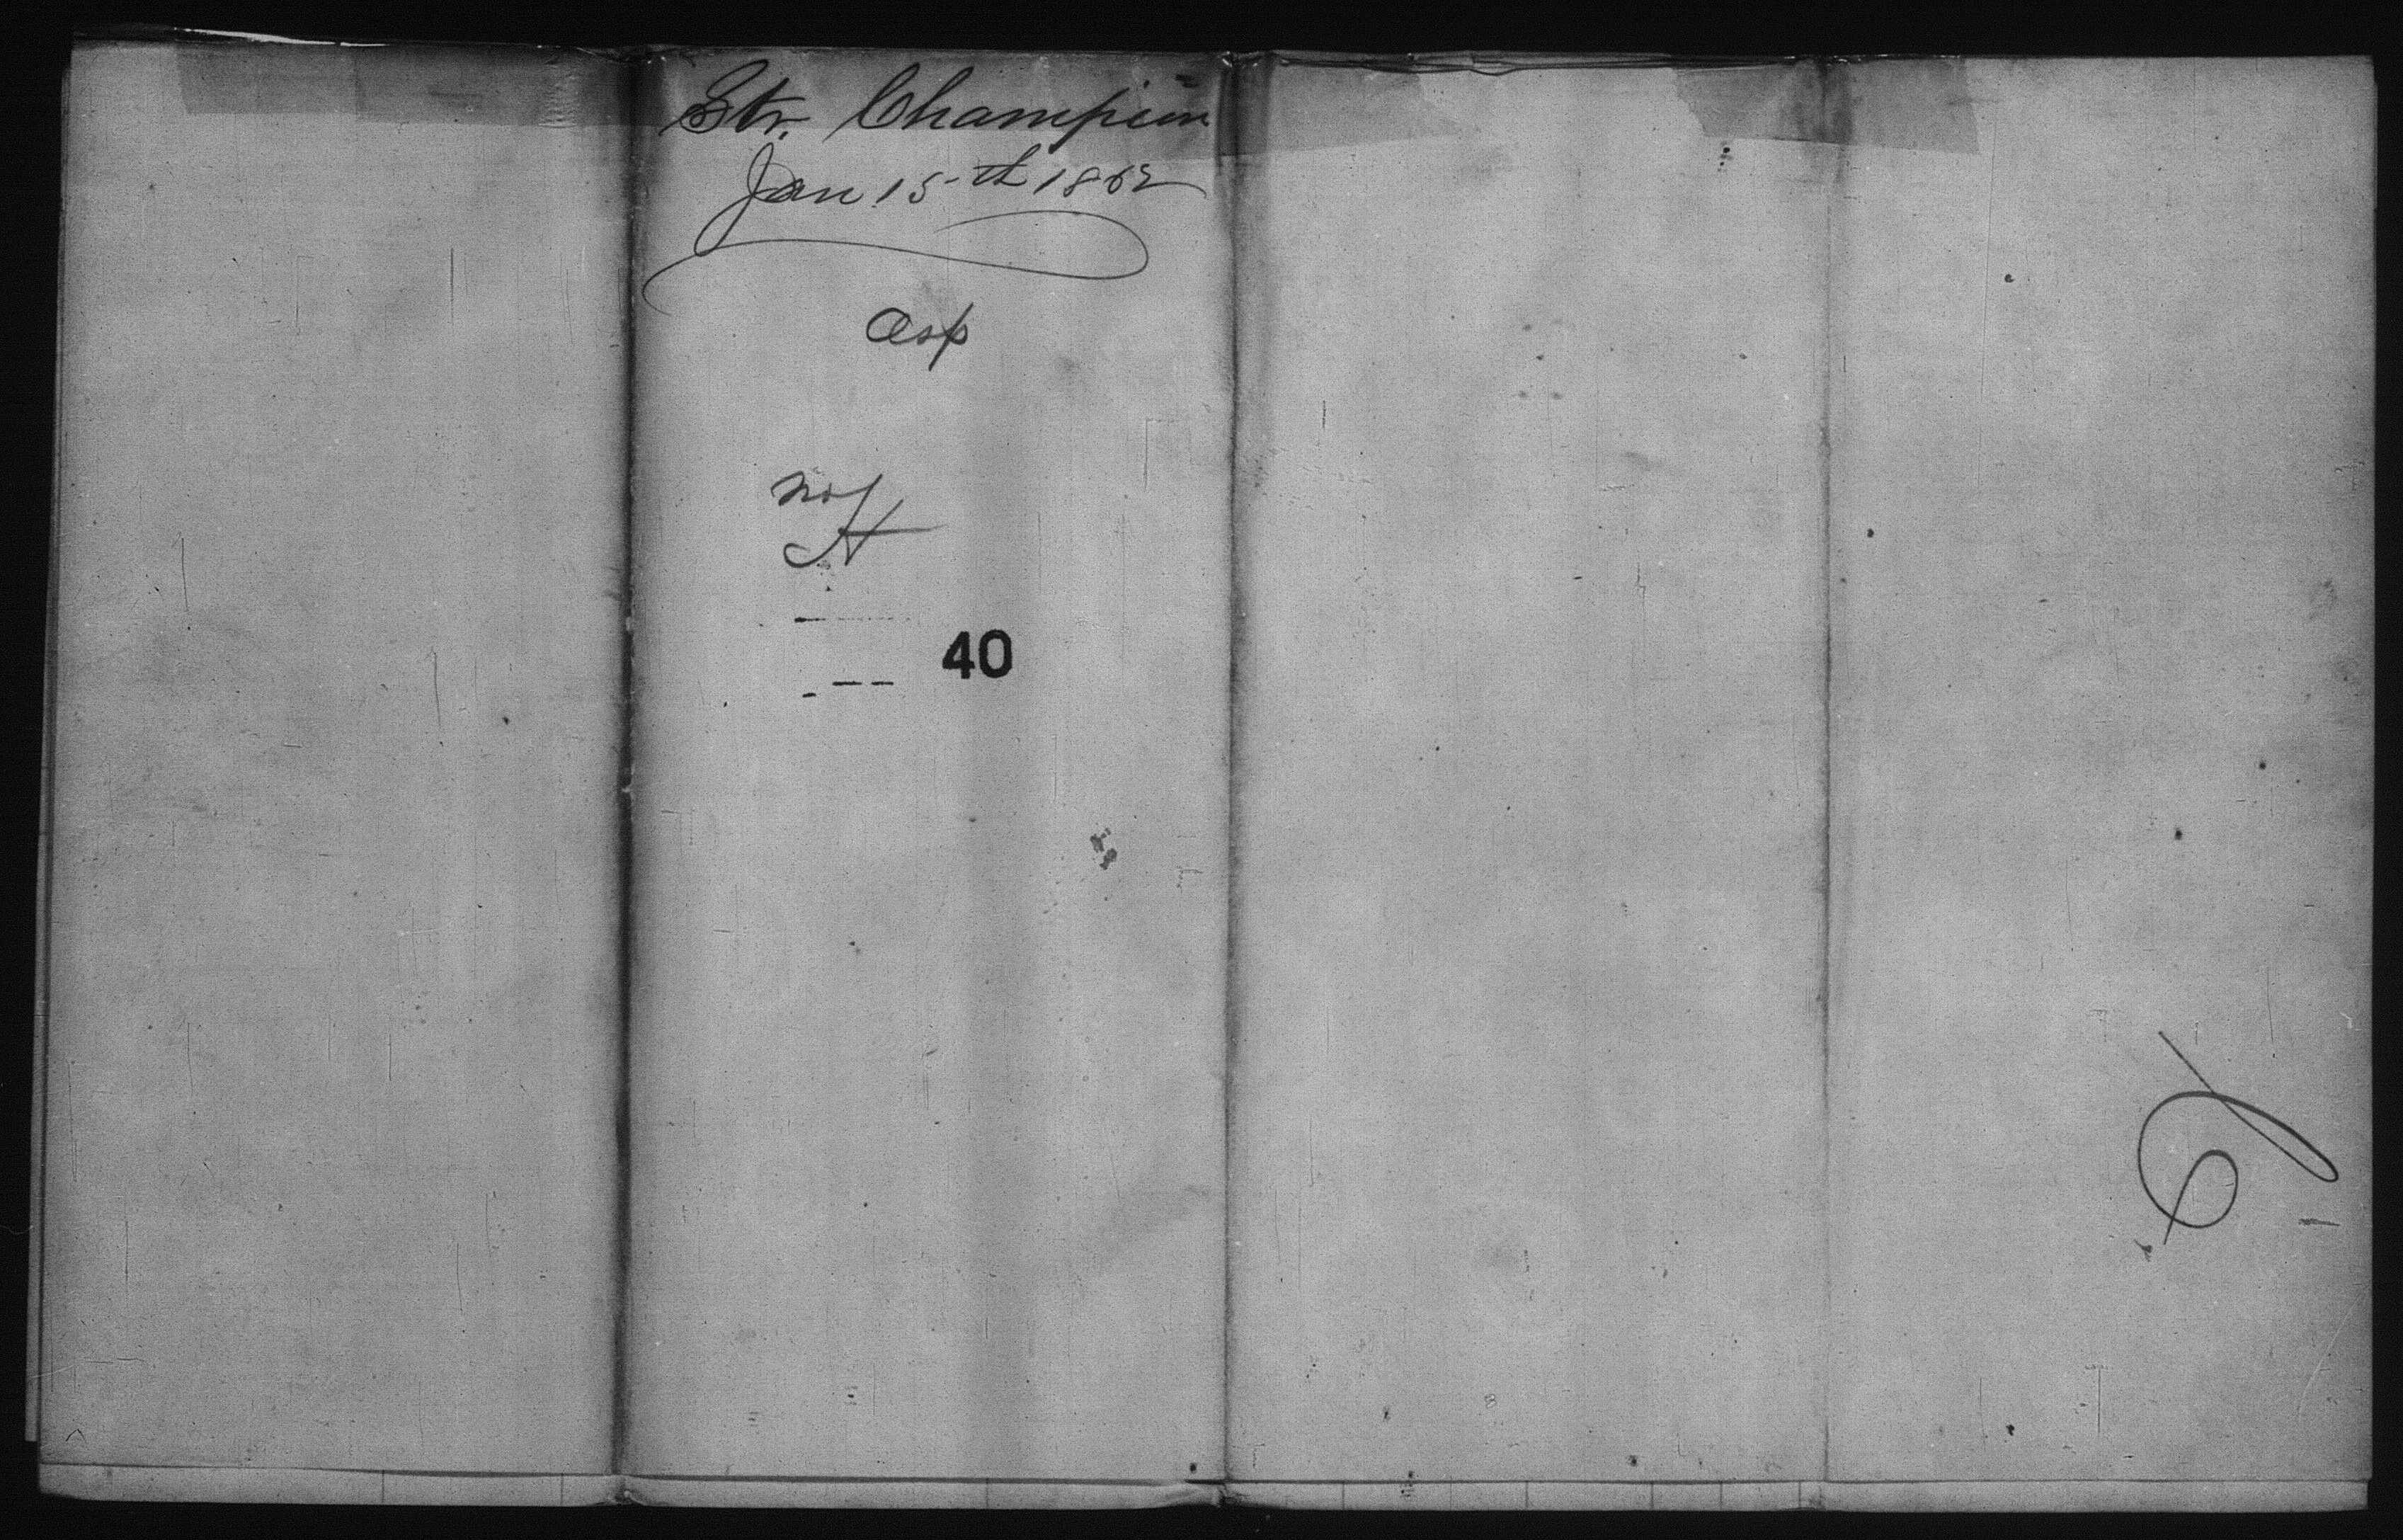 Str. Champion
Jan 15th 1862
asp
40